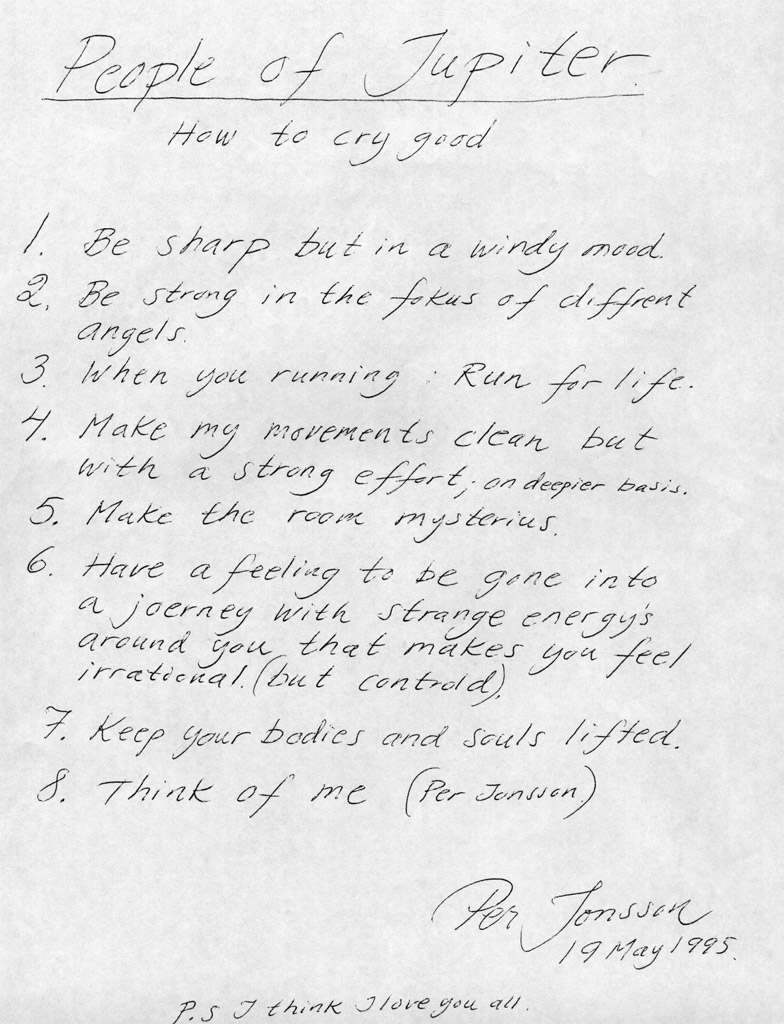 People of Jupiter.
How to cry good
1. Be sharp but in a windy mood.
2. Be strong in the fokus of diffrent
angels.
3. When you running : Run for life.
4. Make my movements clean but
with a strong effort, on deepier basis.
5. Make the room mysterius.
6. Have a feeling to be gone into
a joerney with strange energy's
around you that makes you feel
irrational. (but controld).
7. Keep your bodies and souls lifted.
8. Think of me (Per Jonsson)
Per Jonsson
19 May 1995.
P.s I think I love you all.